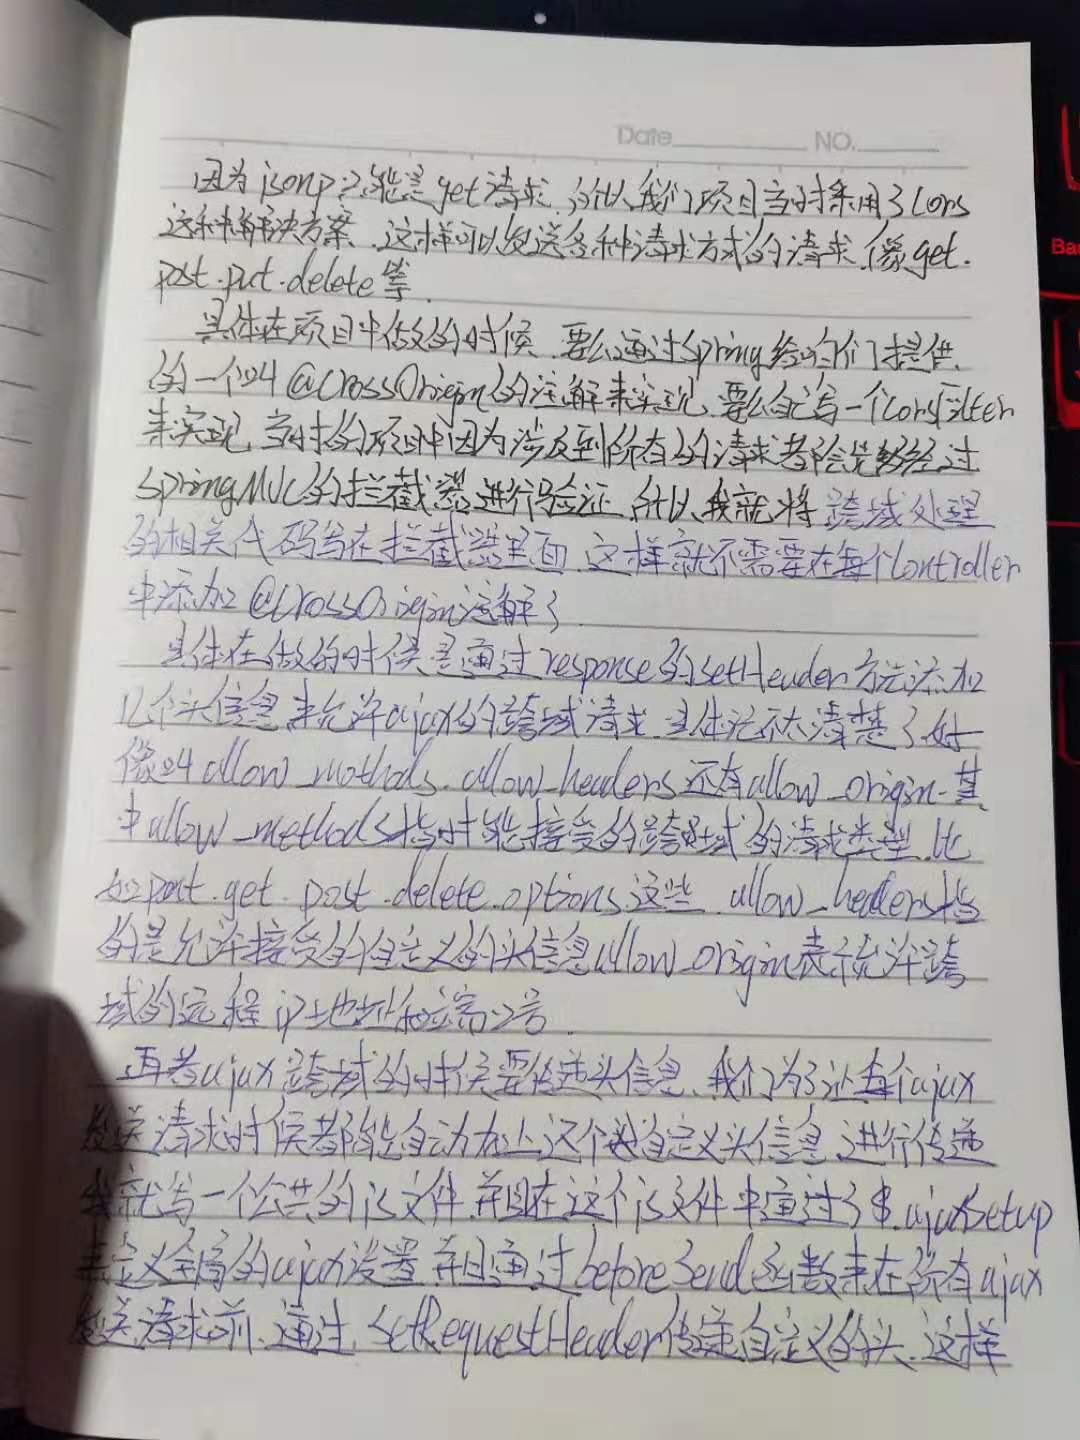 Date NO.
因为jsonp只能是get请求.所以我们项目当时采用了Cors
这种解决方案.这样可以发送各种请求方式的请求.像get.
post.put.delete等.
具体在项目中做的时候.要么通过Spring给咱们提供.
的一个叫@CrossOrigin的注解来实现、要么自己写一个CorsFilter
来实现.当时的项目中因为涉及到所有的请求都会先经过
SpringMVC的拦截器进行验证.所以我就将跨域处理
的相关代码写在拦截器里面.这样就不需要在每个Controller
中添加@CrossOrigin注解了.
具体在做的时候是通过response的setHeader方法添加
几个头信息来允许ajax的跨域请求.具体记不太清楚了.好
像叫allow_mothods.allow_headers还有allow_origin.其
中allow_methods指时能接受的跨域的请求类型.比
如put.get.post.delete.options这些.allow_headers指
的是允许接受的自定义的头信息allow_origin表示允许跨
域的远程ip地址和端口号.
再者ajax跨域的时候要传递头信息.我们为了让每个ajax
发送请求时候都能自动加上这个自定义头信息.进行传递
我就写一个公共的js文件.并且在这个js文件中通过了$.ajaxSetup
来定义全局的ajax设置.并且通过beforeSend函数来在所有ajax
发送请求前.通过.SetRequestHeader传递自定义的头.这样
Ba